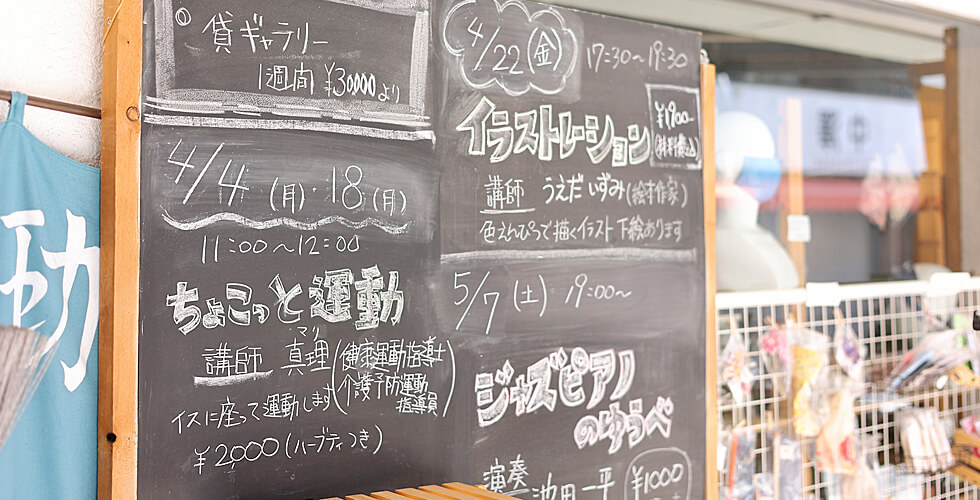 貸ギャラリー
1週間 ¥30,000より
4/4(月)・18(月)
11:00〜12:00
ちょこっと運動
マリ
講師 真理(健康運動指導士
介護予防運動
指導員)
イスに座って運動します
¥2,000(ハーブティつき)
4/22(金) 17:30〜19:30
イラストレーション
¥1900-
(材料費込)
講師 うえだいずみ(絵本作家)
色えんぴつで描くイラスト 下絵あります
5/7(土) 19:00〜
ジャズピアノ
のゆうべ
演奏 池田一平
¥1000
動